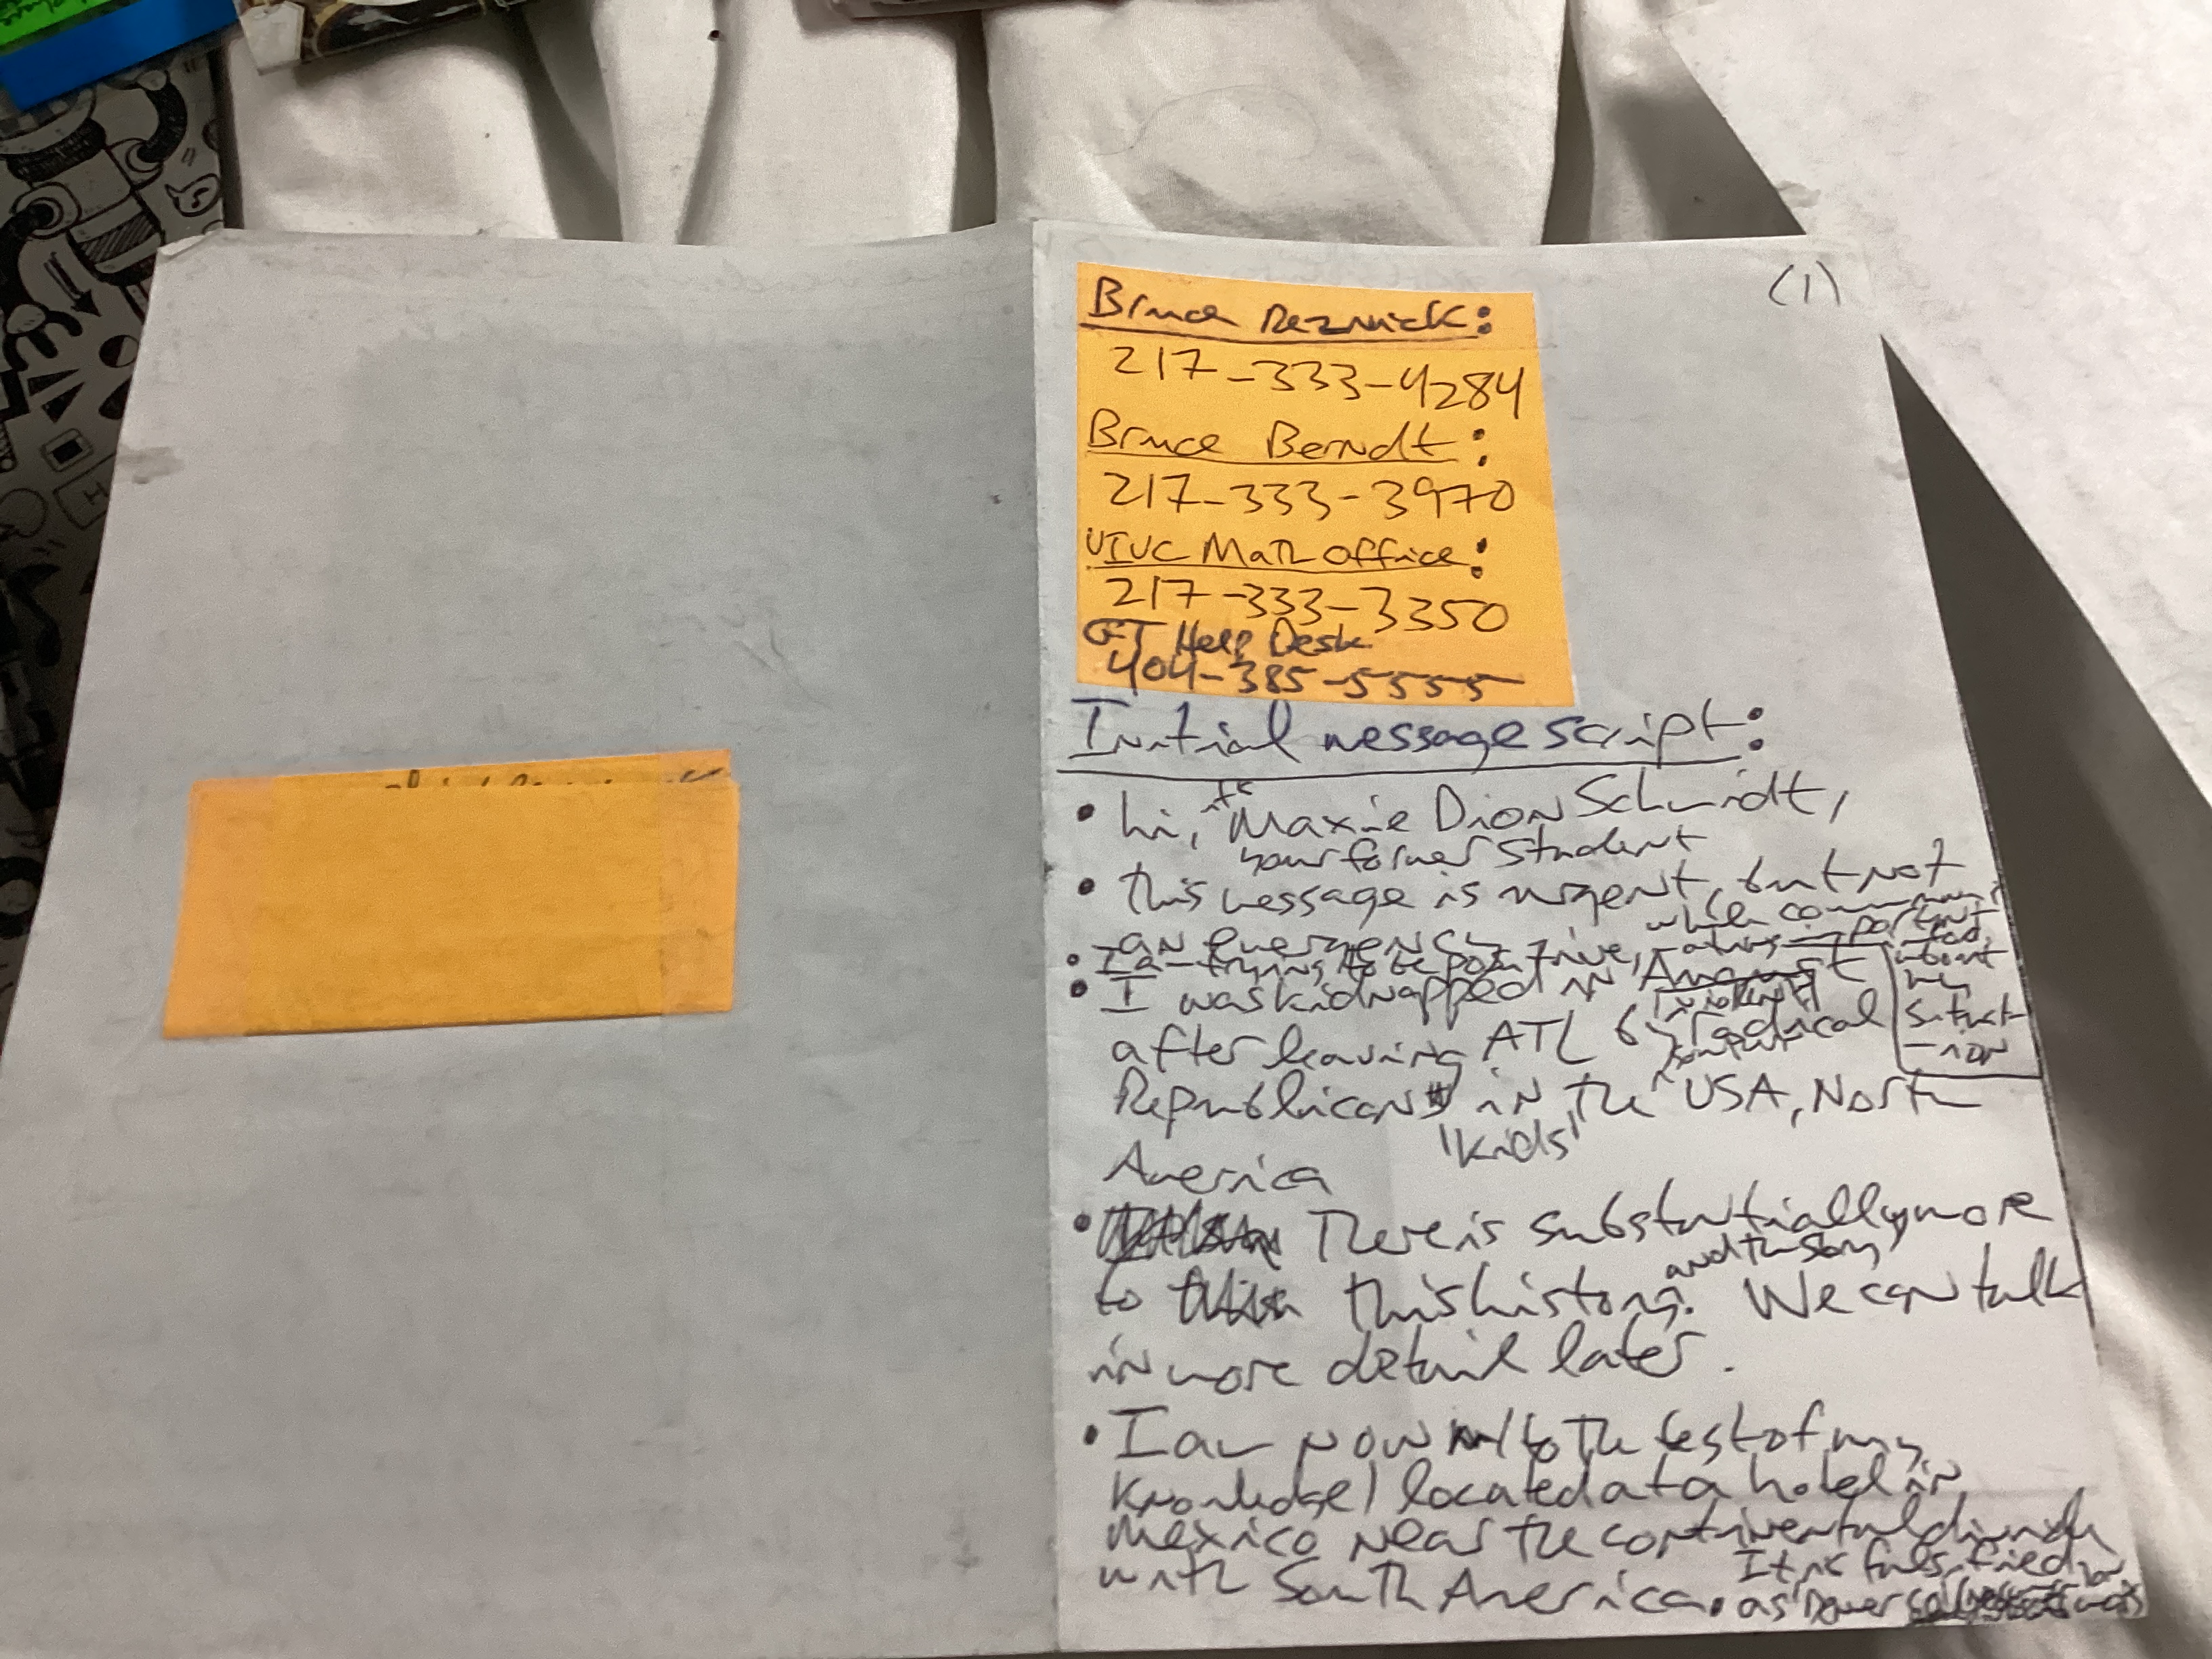 (1)
Bruce Reznick:
217-333-4284
Bruce Berndt:
217-333-3970
UIUC Math Office:
217-333-3350
GT Help Desk
404-385-5555
Initial message script:
• hi, it's Maxie Dion Schmidt,
your former student
• this message is urgent, but not
an emergency
while communic
-ating important
info
about
my
situat
-ion
• I am trying to be positive,
• I was kidnapped in August
violent
after leaving ATL by radical
Republicans in the USA, North
"Kids"
America
• There is substantially more
and the story
to this history. We can talk
in more detail later.
• I am now (to the best of my
knowledge) located at a hotel in
Mexico near the continental divide
with South America. It is falsified
as Denver